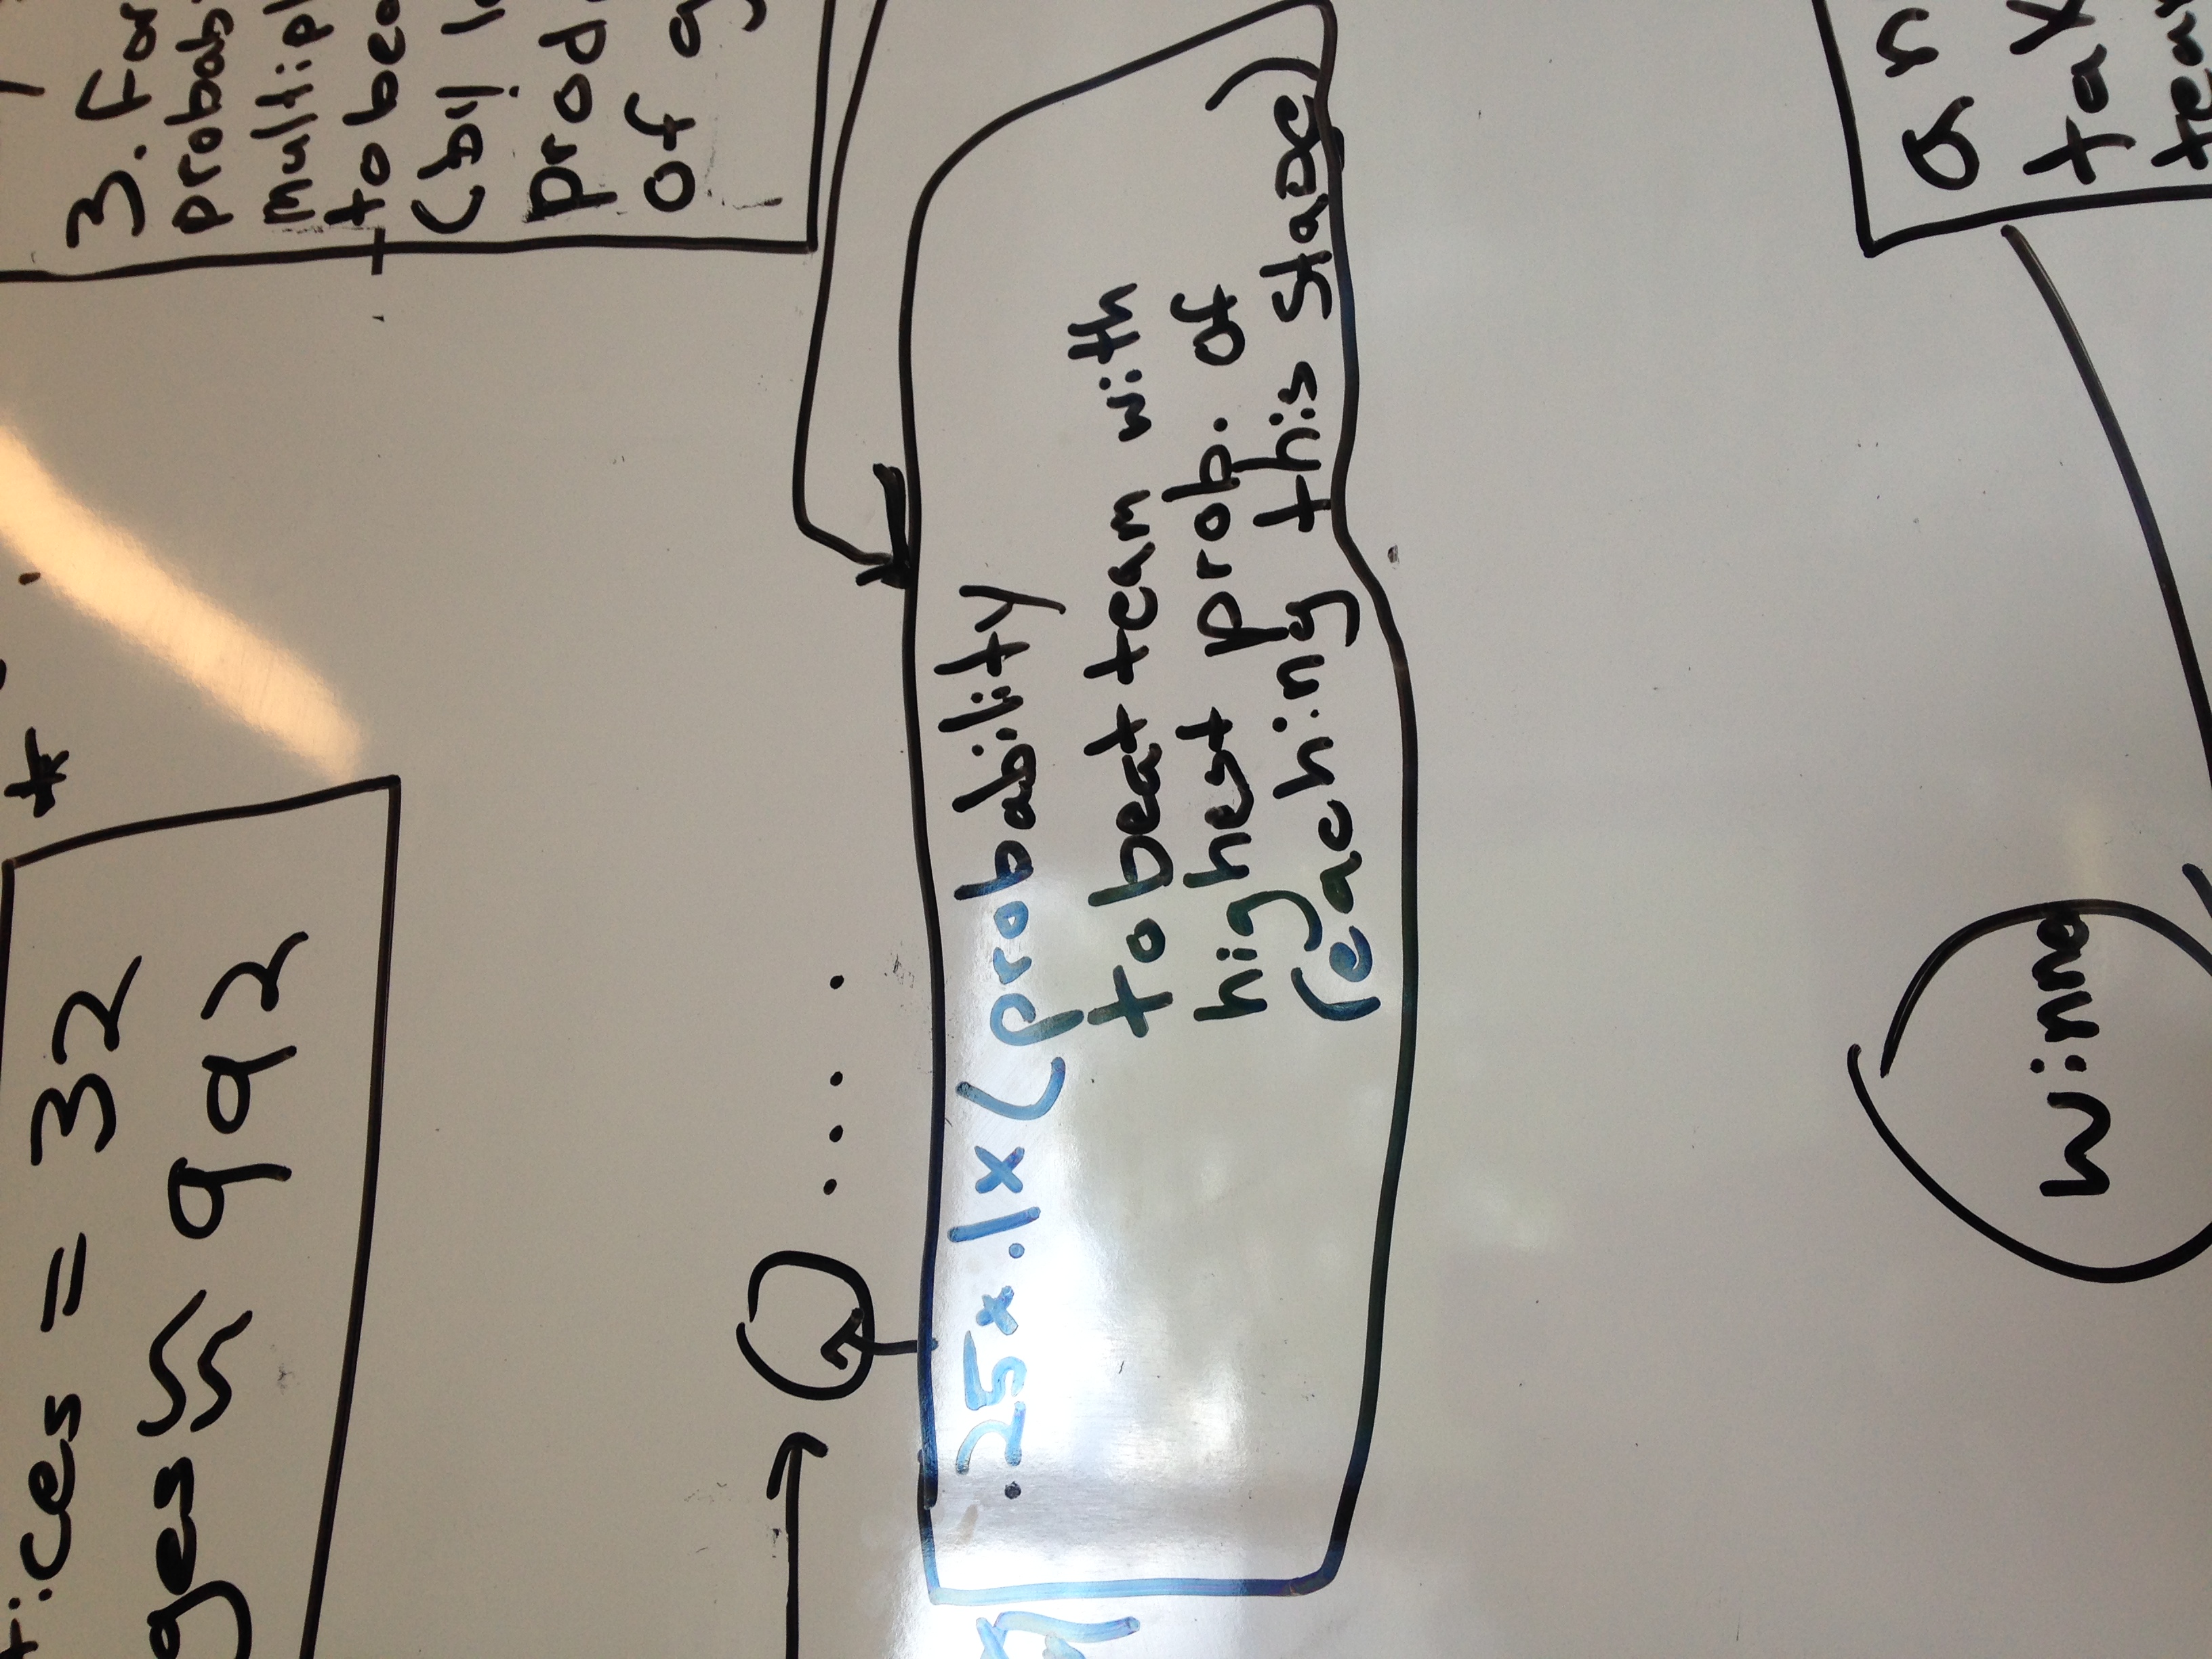 tices = 32
ges ≈ 992
*
3. For
probab
multipl
to bea
(by
prod
of
.25x.1x(probability
to beat team with
highest prob. of
reaching this stage)
winne
an
tak
tea